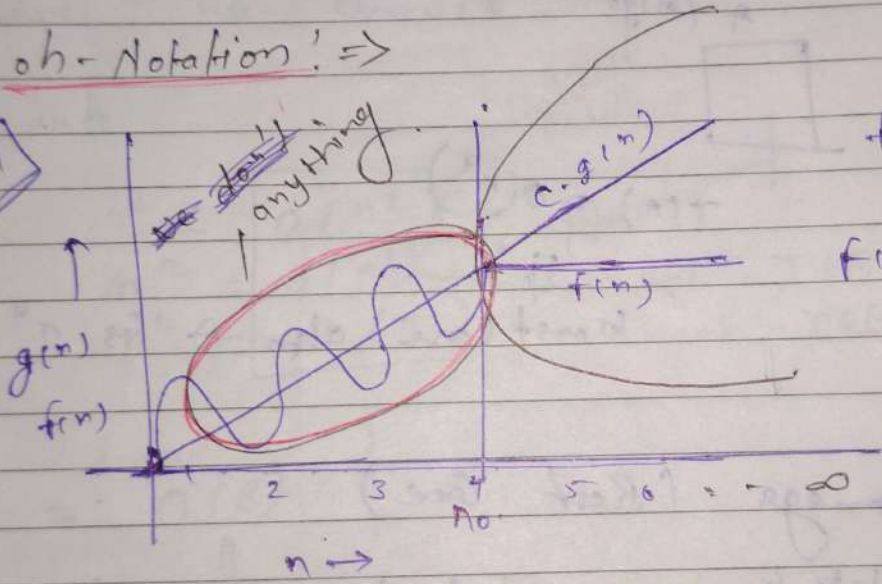 oh-Notation! =>
anything.
c.g(n)
f(n)
g(n)
f(n)
2 3 4 5 6 - - ∞
no
n →